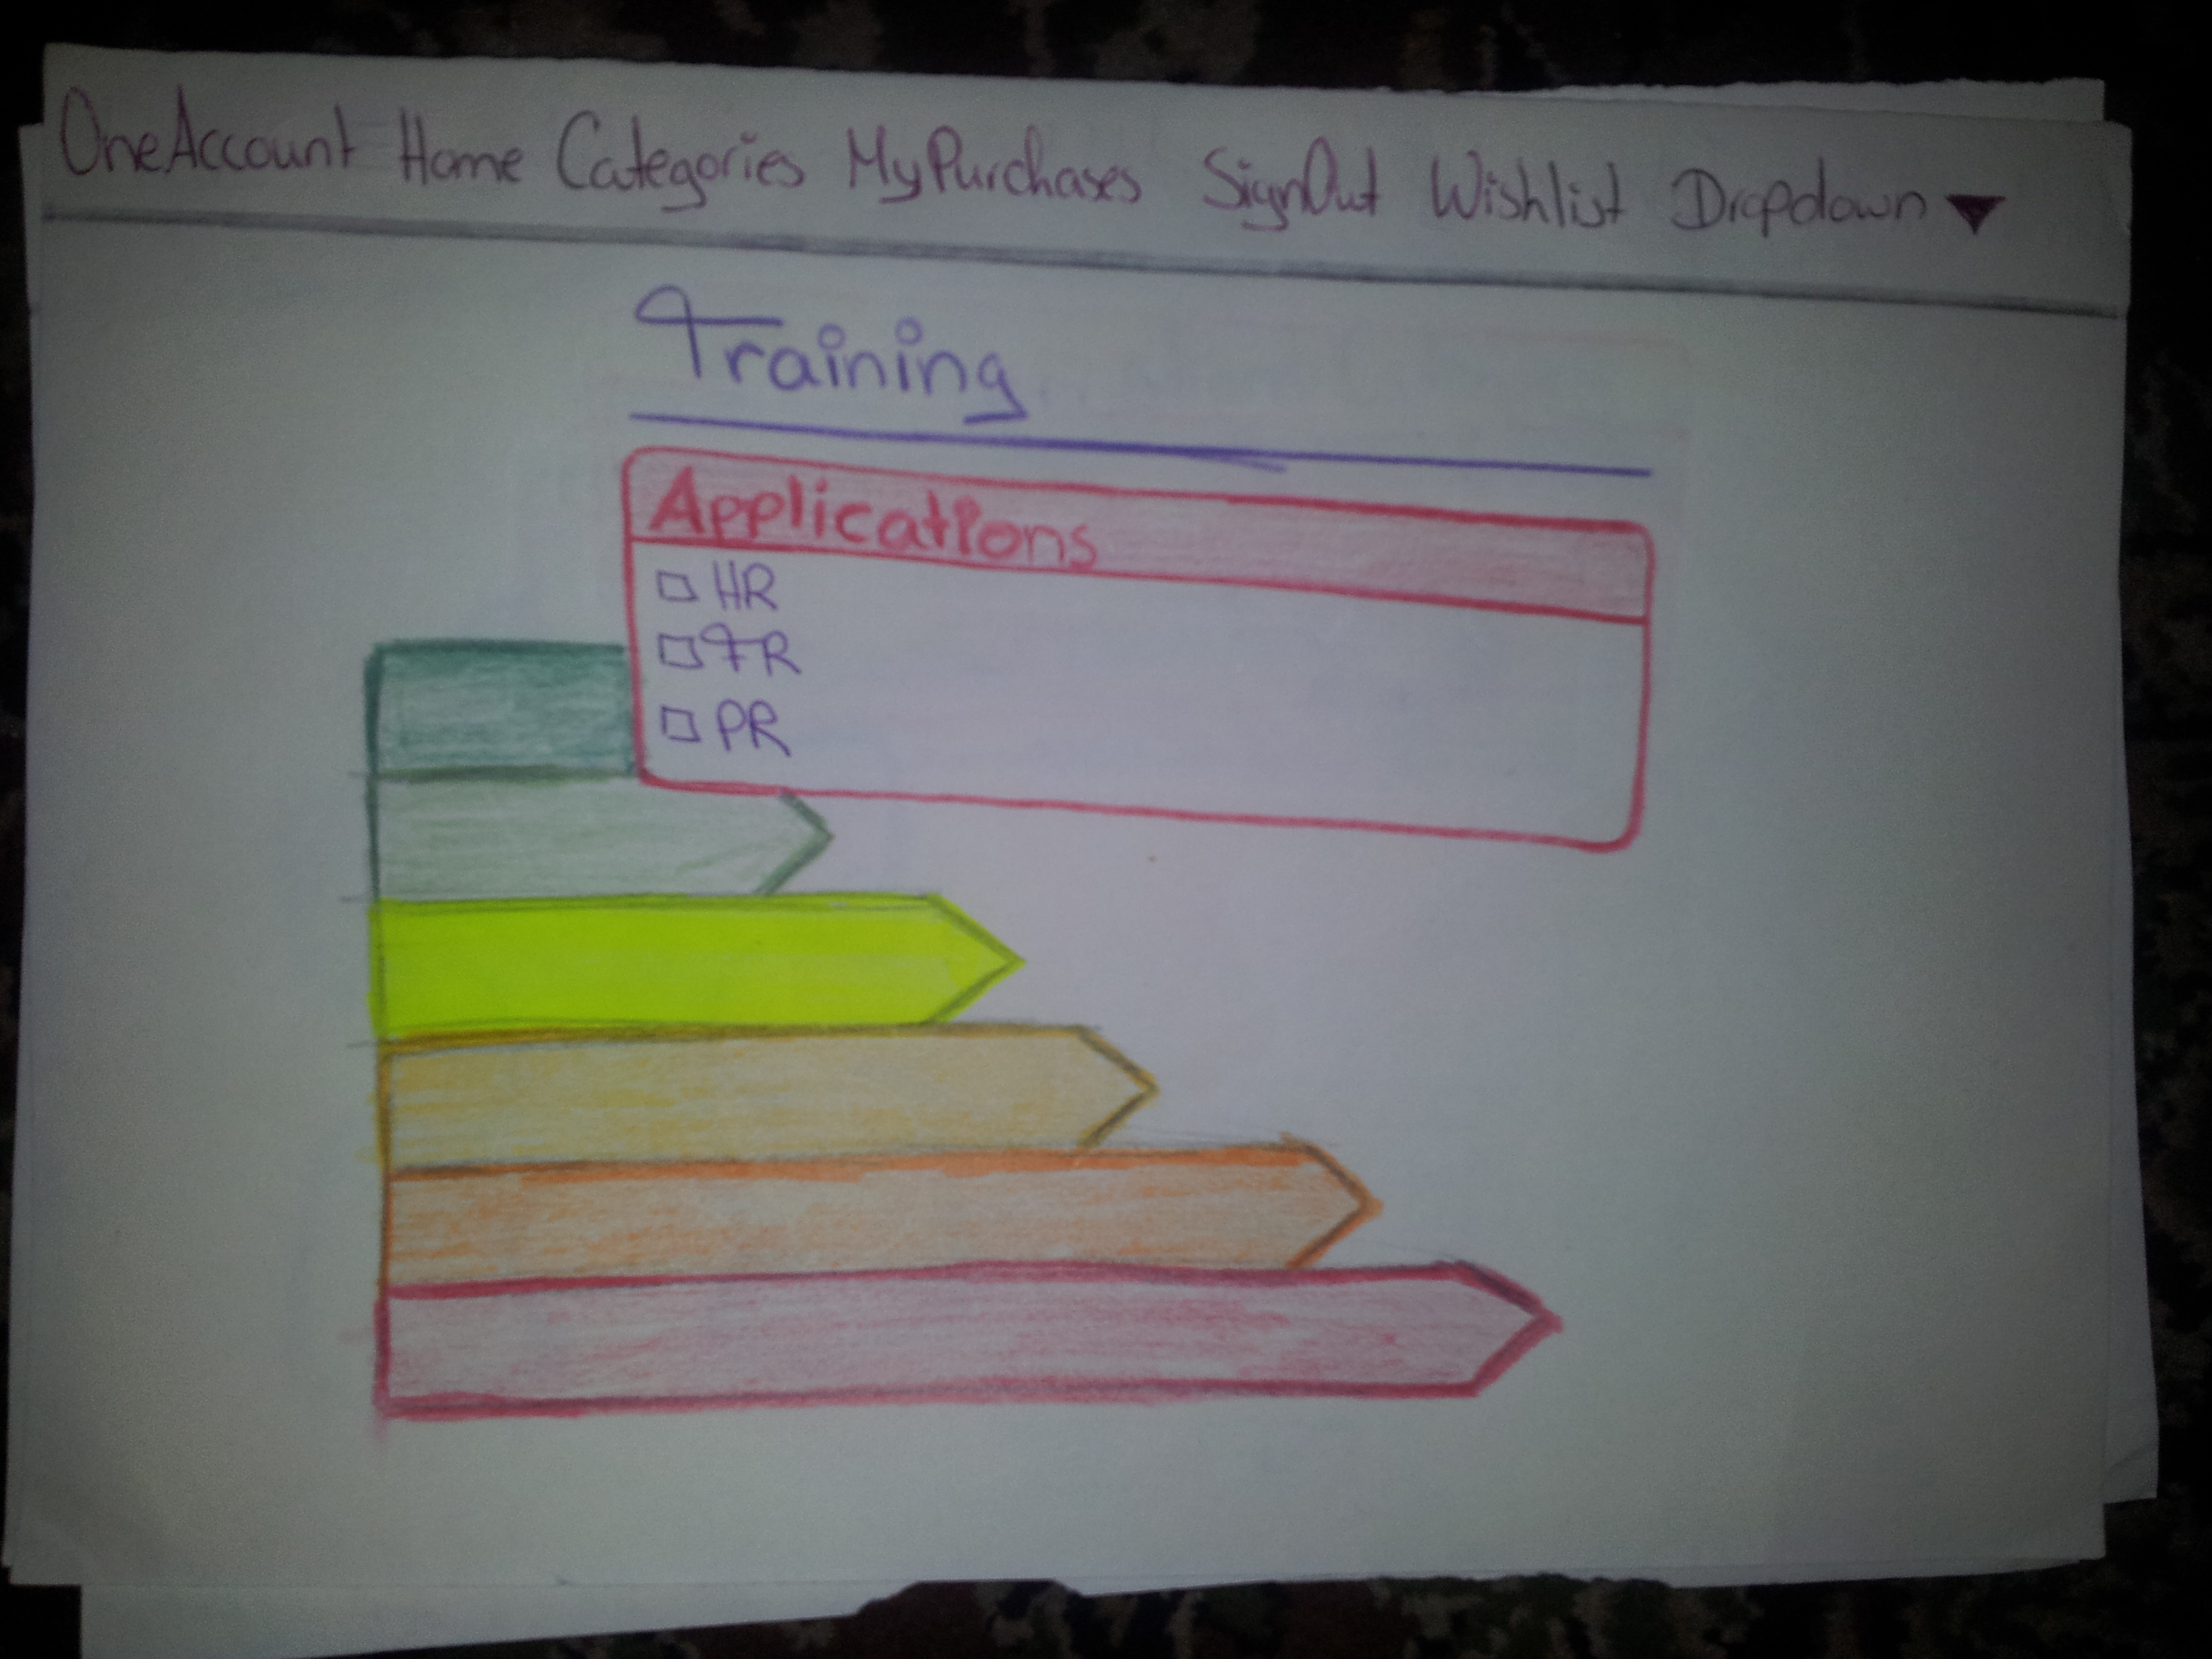 OneAccount Home Categories MyPurchases SignOut Wishlist Dropdown ▼
Training
Applications
☐ HR
☐ TR
☐ PR